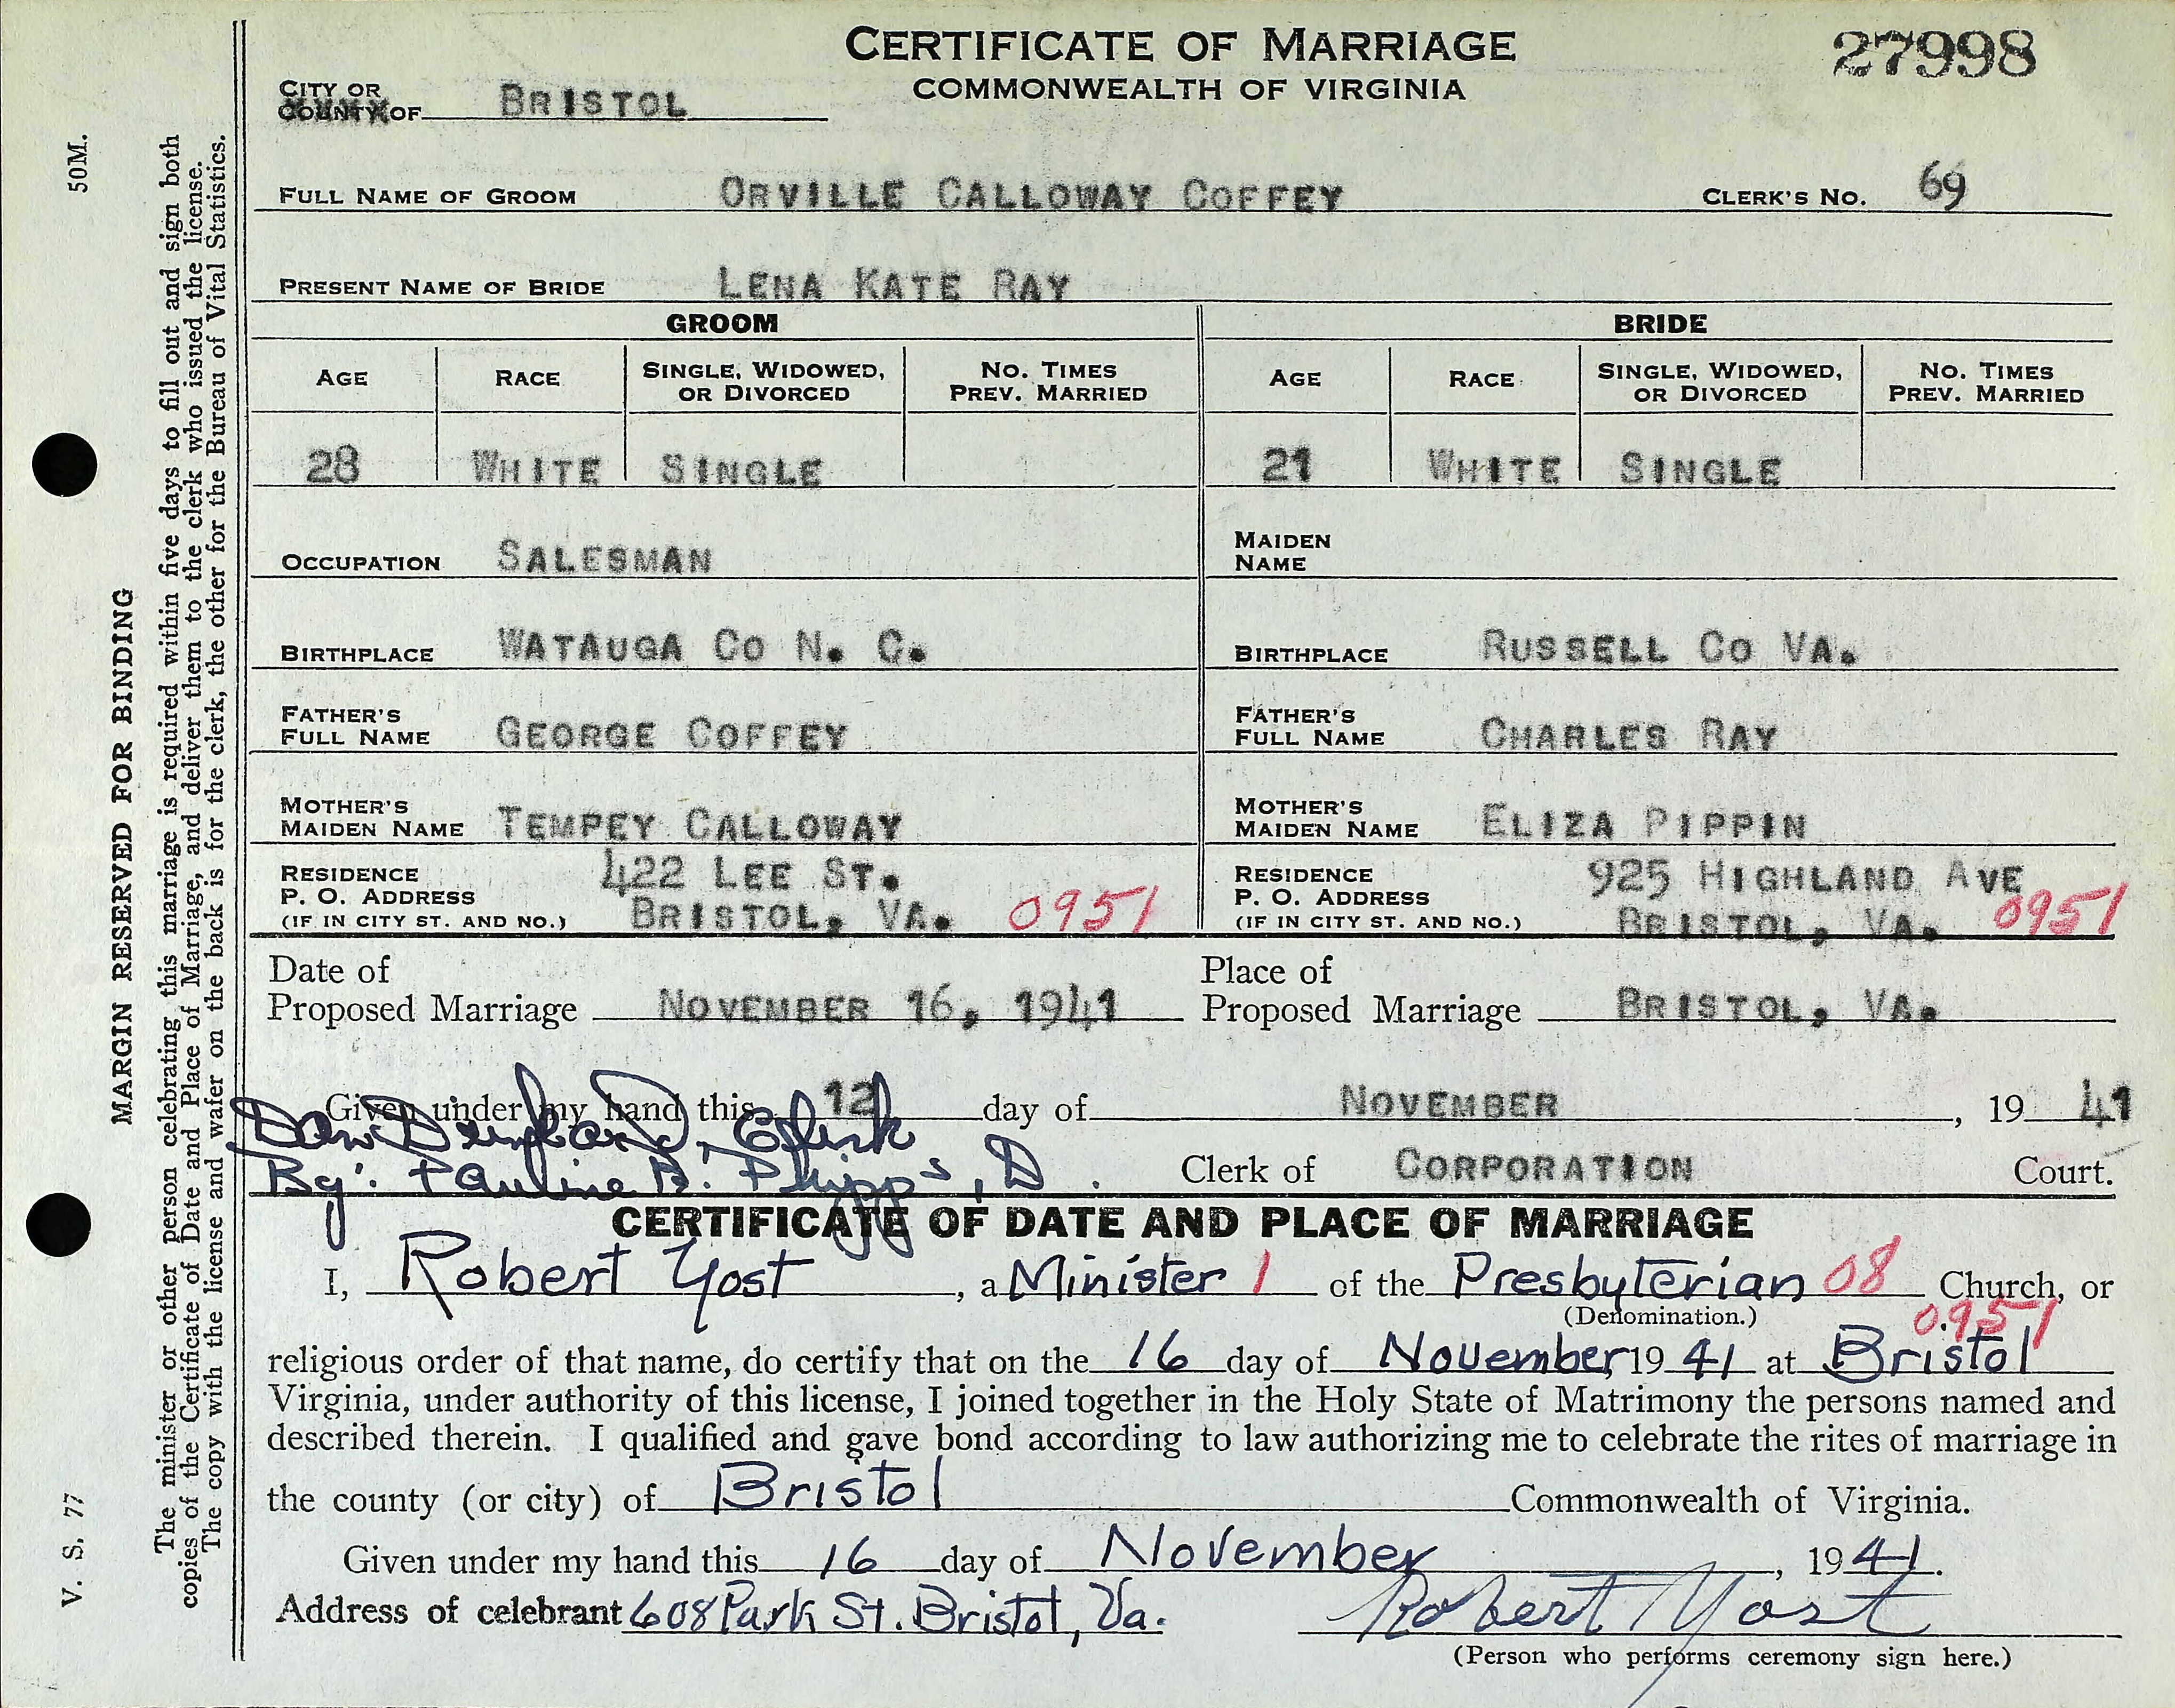 CERTIFICATE OF MARRIAGE
COMMONWEALTH OF VIRGINIA
27998
CITY OR
COUNTY OF BRISTOL
FULL NAME OF GROOM ORVILLE CALLOWAY COFFEY CLERK'S NO. 69
PRESENT NAME OF BRIDE LENA KATE RAY
GROOM BRIDE
AGE RACE SINGLE, WIDOWED, OR DIVORCED NO. TIMES PREV. MARRIED AGE RACE SINGLE, WIDOWED, OR DIVORCED NO. TIMES PREV. MARRIED
28 WHITE SINGLE 21 WHITE SINGLE
OCCUPATION SALESMAN MAIDEN NAME
BIRTHPLACE WATAUGA CO N. C. BIRTHPLACE RUSSELL CO VA.
FATHER'S FULL NAME GEORGE COFFEY FATHER'S FULL NAME CHARLES RAY
MOTHER'S MAIDEN NAME TEMPEY CALLOWAY MOTHER'S MAIDEN NAME ELIZA PIPPIN
RESIDENCE 422 LEE ST. RESIDENCE 925 HIGHLAND AVE
P. O. ADDRESS P. O. ADDRESS
(IF IN CITY ST. AND NO.) BRISTOL, VA. 0951 (IF IN CITY ST. AND NO.) BRISTOL, VA. 0951
Date of Place of
Proposed Marriage NOVEMBER 16, 1941 Proposed Marriage BRISTOL, VA.
Given under my hand this 12 day of NOVEMBER, 19 41
Clerk
By: Pauline B. Phipps, D. Clerk of CORPORATION Court.
CERTIFICATE OF DATE AND PLACE OF MARRIAGE
I, Robert Yost, a Minister 1 of the Presbyterian 08 Church, or
(Denomination.) 0951
religious order of that name, do certify that on the 16 day of November, 19 41 at Bristol
Virginia, under authority of this license, I joined together in the Holy State of Matrimony the persons named and
described therein. I qualified and gave bond according to law authorizing me to celebrate the rites of marriage in
the county (or city) of Bristol Commonwealth of Virginia.
Given under my hand this 16 day of November, 19 41.
Address of celebrant 608 Park St. Bristol, Va. Robert Yost
(Person who performs ceremony sign here.)
V. S. 77 50M.
MARGIN RESERVED FOR BINDING
The minister or other person celebrating this marriage is required within five days to fill out and sign both
copies of the Certificate of Date and Place of Marriage, and deliver them to the clerk who issued the license.
The copy with the license and wafer on the back is for the clerk, the other for the Bureau of Vital Statistics.